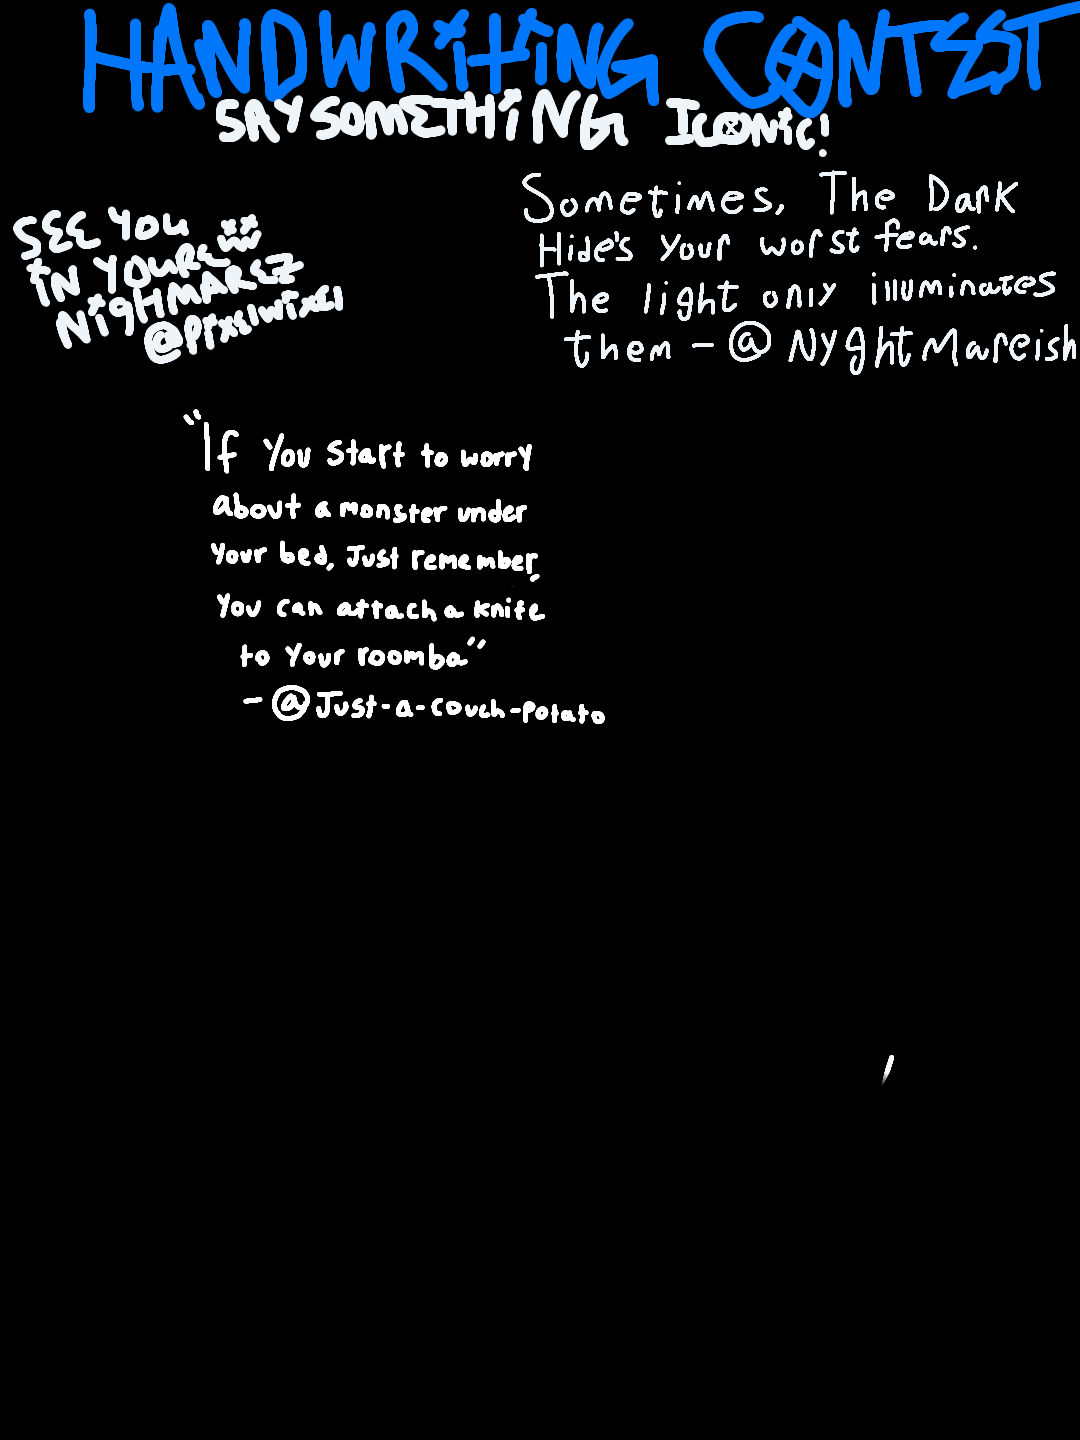 HANDWRITING CONTEST
SAY SOMETHING ICONIC!
SEE YOU
IN YOURE
NIGHMAREZ
@prxslwixsl
Sometimes, The Dark
Hide's your worst fears.
The light only illuminates
them - @NyghtMareish
"If you start to worry
about a monster under
your bed, Just remember,
you can attach a knife
to your roomba"
- @Just-a-couch-potato